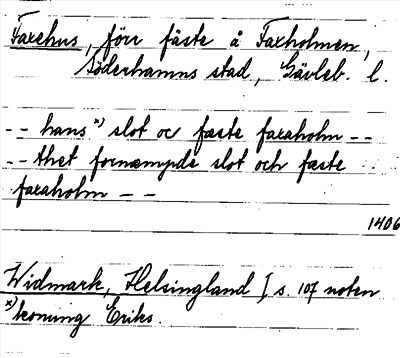 Faxehus, förr fäste å Faxholmen,
Söderhamns stad, Gävleb. l.
-- hans x) slot oc fæste faxaholm --
-- thet fornæmpde slot och fæste
faxaholm --
1406
Widmark, Helsingland I s. 107 noten
x) konung Eriks.